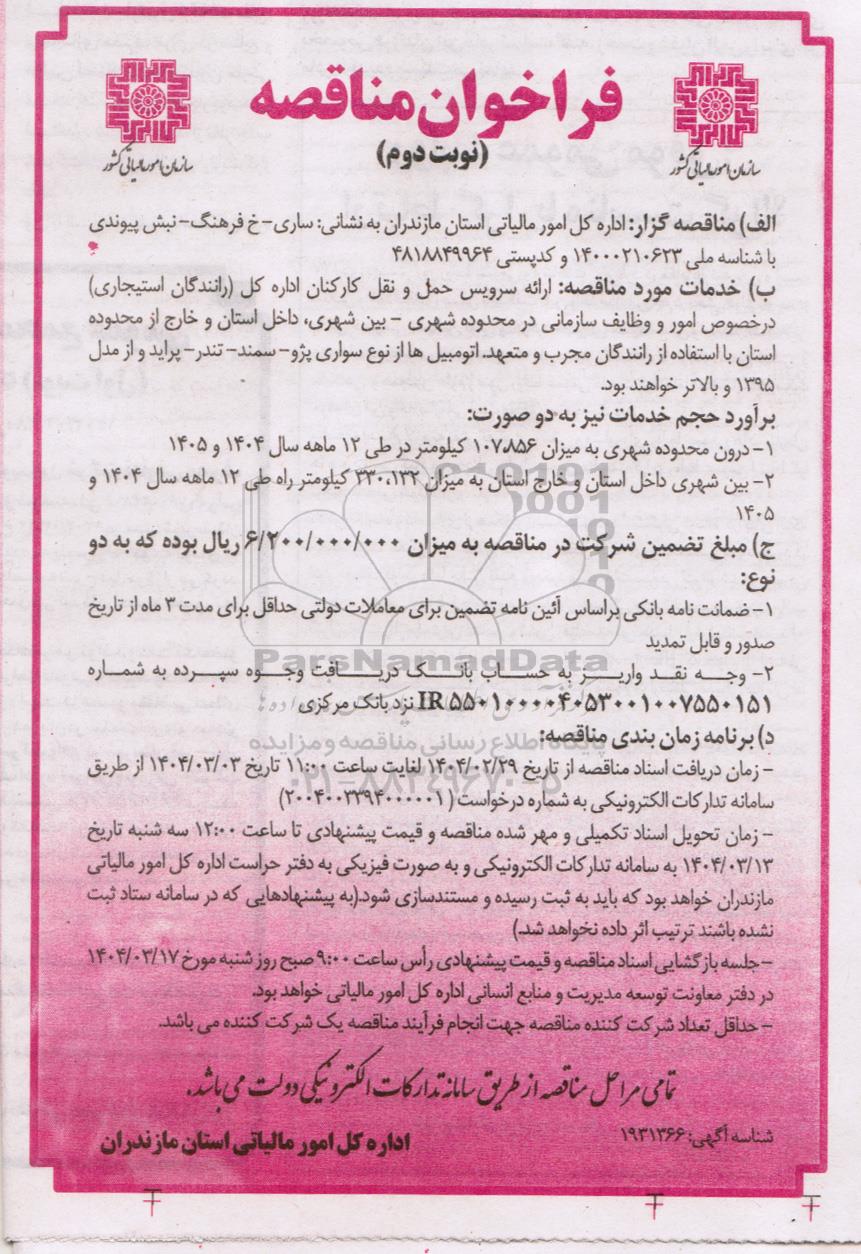 فراخوان مناقصه
(نوبت دوم)
سازمان امور مالیاتی کشور
سازمان امور مالیاتی کشور
الف) مناقصه گزار: اداره کل امور مالیاتی استان مازندران به نشانی: ساری- خ فرهنگ- نبش پیوندی
با شناسه ملی ۱۴۰۰۰۲۱۰۶۲۳ و کدپستی ۴۸۱۸۸۴۹۹۶۴
ب) خدمات مورد مناقصه: ارائه سرویس حمل و نقل کارکنان اداره کل (رانندگان استیجاری)
درخصوص امور و وظایف سازمانی در محدوده شهری - بین شهری، داخل استان و خارج از محدوده
استان با استفاده از رانندگان مجرب و متعهد. اتومبیل ها از نوع سواری پژو- سمند- تندر- پراید و از مدل
۱۳۹۵ و بالاتر خواهند بود.
برآورد حجم خدمات نیز به دو صورت:
۱- درون محدوده شهری به میزان ۱۰۷،۸۵۶ کیلومتر در طی ۱۲ ماهه سال ۱۴۰۴ و ۱۴۰۵
۲- بین شهری داخل استان و خارج استان به میزان ۳۳۰،۱۳۲ کیلومتر راه طی ۱۲ ماهه سال ۱۴۰۴ و
۱۴۰۵
ج) مبلغ تضمین شرکت در مناقصه به میزان ۶/۲۰۰/۰۰۰/۰۰۰ ریال بوده که به دو
نوع:
۱- ضمانت نامه بانکی براساس آئین نامه تضمین برای معاملات دولتی حداقل برای مدت ۳ ماه از تاریخ
صدور و قابل تمدید
ParsNamadData
۲- وجه نقد واریز به حساب بانک دریافت وجوه سپرده به شماره
IR ۵۵۰۱۰۰۰۰۴۰۵۳۰۰۱۰۰۷۵۵۰۱۵۱ نزد بانک مرکزی
د) برنامه زمان بندی مناقصه:
پایگاه اطلاع رسانی مناقصه و مزایده
- زمان دریافت اسناد مناقصه از تاریخ ۱۴۰۴/۰۲/۲۹ لغایت ساعت ۱۱:۰۰ تاریخ ۱۴۰۴/۰۳/۰۳ از طریق
۰۲۱-۸۸۳۴۹۶۷۰-۵
سامانه تدارکات الکترونیکی به شماره درخواست ( ۲۰۰۴۰۰۳۳۹۴۰۰۰۰۰۱)
- زمان تحویل اسناد تکمیلی و مهر شده مناقصه و قیمت پیشنهادی تا ساعت ۱۲:۰۰ سه شنبه تاریخ
۱۴۰۴/۰۳/۱۳ به سامانه تدارکات الکترونیکی و به صورت فیزیکی به دفتر حراست اداره کل امور مالیاتی
مازندران خواهد بود که باید به ثبت رسیده و مستندسازی شود.(به پیشنهادهایی که در سامانه ستاد ثبت
نشده باشند ترتیب اثر داده نخواهد شد.)
- جلسه بازگشایی اسناد مناقصه و قیمت پیشنهادی رأس ساعت ۹:۰۰ صبح روز شنبه مورخ ۱۴۰۴/۰۳/۱۷
در دفتر معاونت توسعه مدیریت و منابع انسانی اداره کل امور مالیاتی خواهد بود.
- حداقل تعداد شرکت کننده مناقصه جهت انجام فرآیند مناقصه یک شرکت کننده می باشد.
تمامی مراحل مناقصه از طریق سامانه تدارکات الکترونیکی دولت می باشد.
شناسه آگهی: ۱۹۳۱۳۶۶
اداره کل امور مالیاتی استان مازندران